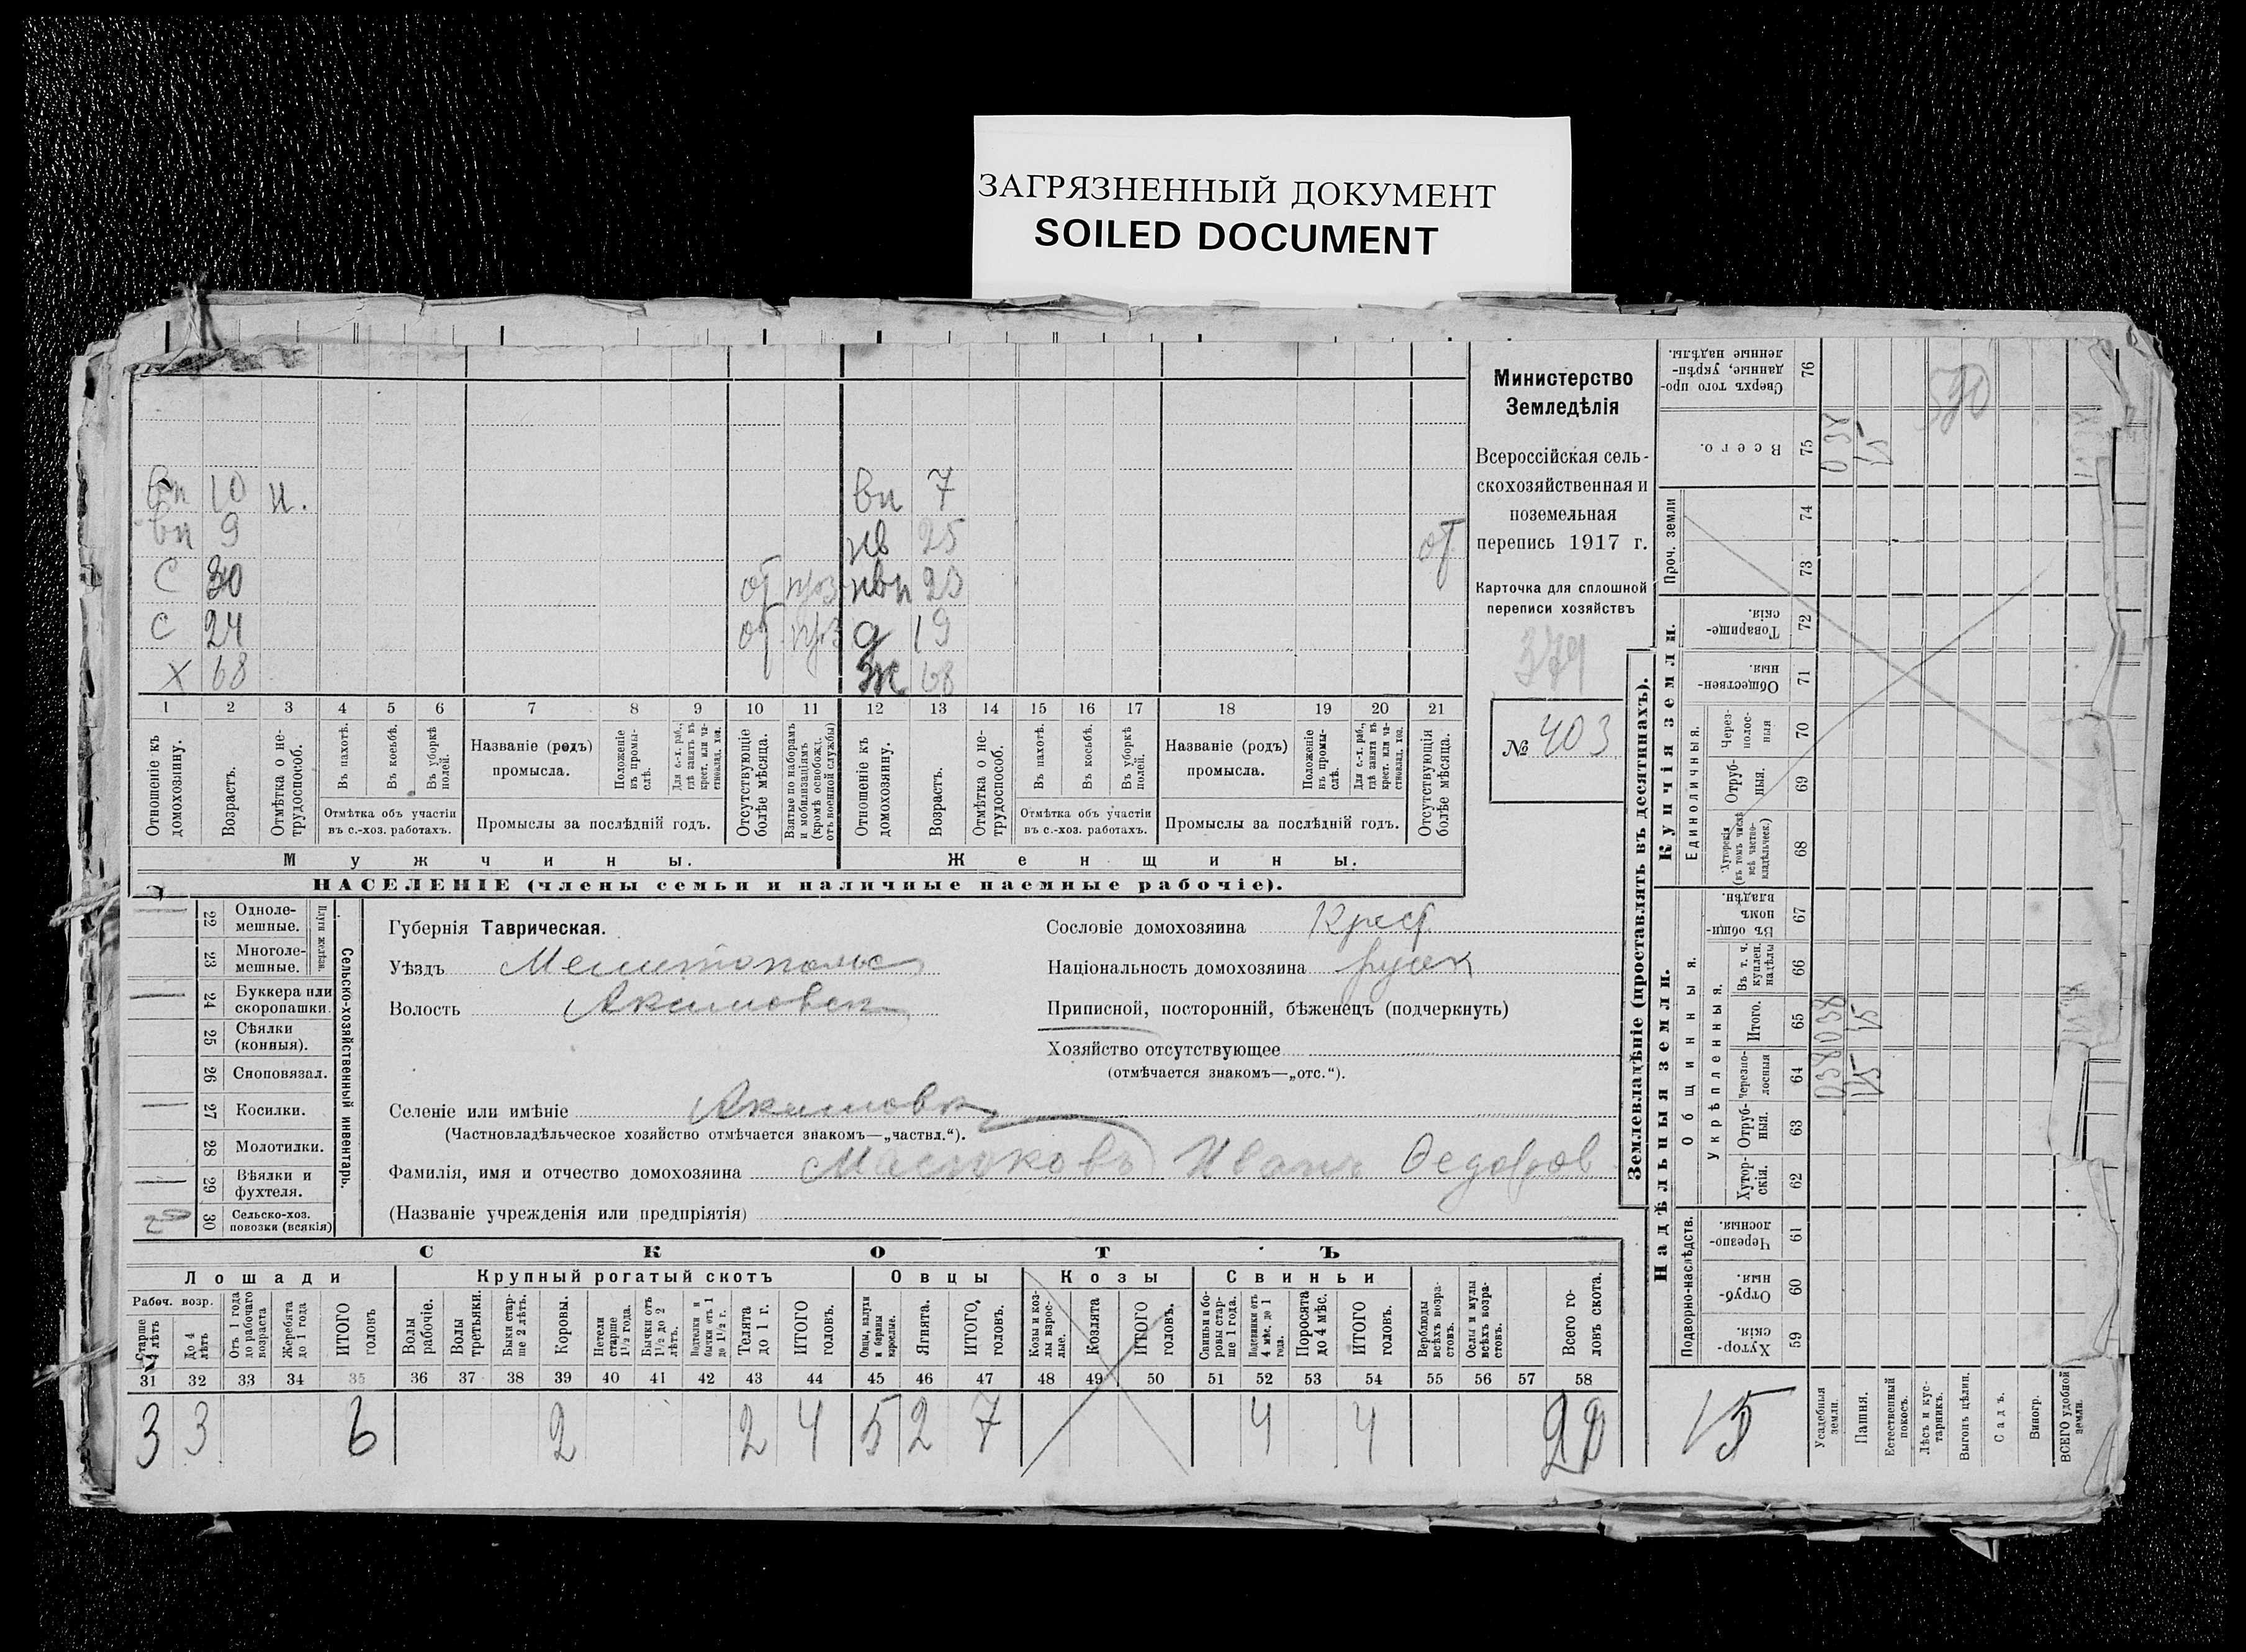 ЗАГРЯЗНЕННЫЙ ДОКУМЕНТ
SOILED DOCUMENT
вн 10 н. вн 7
вн 9 нв 25 от
С 30 от нвн 23
С 24 от д 19
х 68 ж 68
1 2 3 4 5 6 7 8 9 10 11 12 13 14 15 16 17 18 19 20 21
Отношеніе къ домохозяину.
Возрастъ.
Отмѣтка о не-трудоспособ.
Въ пахотѣ.
Въ косьбѣ.
Въ уборкѣ полей.
Отмѣтка объ участіи въ с.-хоз. работахъ.
Названіе (родъ) промысла.
Положеніе въ промы-слѣ.
Для с.-х. раб., гдѣ занятъ въ крест. или ча-стновлад. хоз.
Промыслы за послѣдній годъ.
Отсутствующіе болѣе мѣсяца.
Взятые по наборамъ и мобилизаціямъ (кромѣ освобожд. отъ военной службы)
Отношеніе къ домохозяину.
Возрастъ.
Отмѣтка о не-трудоспособ.
Въ пахотѣ.
Въ косьбѣ.
Въ уборкѣ полей.
Отмѣтка объ участіи въ с.-хоз. работахъ.
Названіе (родъ) промысла.
Положеніе въ промы-слѣ.
Для с.-х. раб., гдѣ занята въ крест. или ча-стновлад. хоз.
Промыслы за послѣдній годъ.
Отсутствующія болѣе мѣсяца.
Мужчины. Женщины.
НАСЕЛЕНІЕ (члены семьи и наличные наемные рабочіе).
Министерство
Земледѣлія
Всероссійская сель-
скохозяйственная и
поземельная
перепись 1917 г.
Карточка для сплошной
переписи хозяйствъ
379
№ 403
22 Одноле-мешные.
23 Многоле-мешные.
Плуги желѣзн.
24 Буккера или скоропашки.
25 Сѣялки (конныя).
26 Сноповязал.
27 Косилки.
28 Молотилки.
29 Вѣялки и фухтеля.
30 Сельско-хоз. повозки (всякія)
Сельско-хозяйственный инвентарь.
Губернія Таврическая.
Уѣздъ Мелитопольс
Волость Акимовск
Селеніе или имѣніе Акимовк
(Частновладѣльческое хозяйство отмѣчается знакомъ—„частвл.“).
Фамилія, имя и отчество домохозяина Масюковъ Иванъ Ѳедоров
(Названіе учрежденія или предпріятія)
Сословіе домохозяина Крест.
Національность домохозяина русск
Приписной, посторонній, бѣженецъ (подчеркнуть)
Хозяйство отсутствующее
(отмѣчается знакомъ—„отс.“).
СКОТЪ
Лошади Крупный рогатый скотъ Овцы Козы Свиньи
Рабоч. возр.
Старше 4 лѣтъ
До 4 лѣтъ
Отъ 1 года до рабочаго возраста
Жеребята до 1 года
ИТОГО головъ
Волы рабочіе.
Волы третьяки.
Быки стар-ше 2 лѣтъ.
Коровы.
Нетели старше 1½ года.
Бычки отъ 1½ до 2 лѣтъ.
Подтелки и бычки отъ 1 до 1½ г.
Телята до 1 г.
ИТОГО головъ.
Овцы, валухи и бараны взрослые.
Ягнята.
ИТОГО.
Козы и коз-лы взрос-лые.
Козлята
ИТОГО головъ.
Свиньи и бо-ровы стар-ше 1 года.
Подсвинки отъ 4 мѣс. до 1 года.
Поросята до 4 мѣс.
ИТОГО головъ.
Верблюды всѣхъ возра-стовъ.
Ослы и мулы всѣхъ возра-стовъ.
Всего го-ловъ скота.
31 32 33 34 35 36 37 38 39 40 41 42 43 44 45 46 47 48 49 50 51 52 53 54 55 56 57 58
3 3 6 2 2 4 5 2 7 4 4
Землевладѣніе (проставлять въ десятинахъ).
Надѣльныя земли. Купчія земли.
Подворно-наслѣдств. Общинныя. Единоличныя. Проч. земли
Укрѣпленныя.
59 Хутор-скія.
60 Отруб-ныя.
61 Черезпо-лосныя.
62 Хутор-скія.
63 Отруб-ныя.
64 Черезпо-лосныя
65 Итого.
66 Въ т. ч. куплен. надѣлы
67 Въ общи-номъ владѣн.
68 Хуторскія (въ томъ числѣ всѣ частно-владѣльческ.)
69 Отруб-ныя.
70 Через-полос-ныя
71 Обществен-ныя.
72 Товарище-скія.
73
74
75 Всего.
76 Сверхъ того про-данные, укрѣп-ленные надѣлы.
15
Усадебныя земли.
Пашня.
Естественный покосъ.
Лѣсъ и кус-тарникъ.
Выгонъ цѣлин.
Садъ.
Виногр.
ВСЕГО удобной земли.